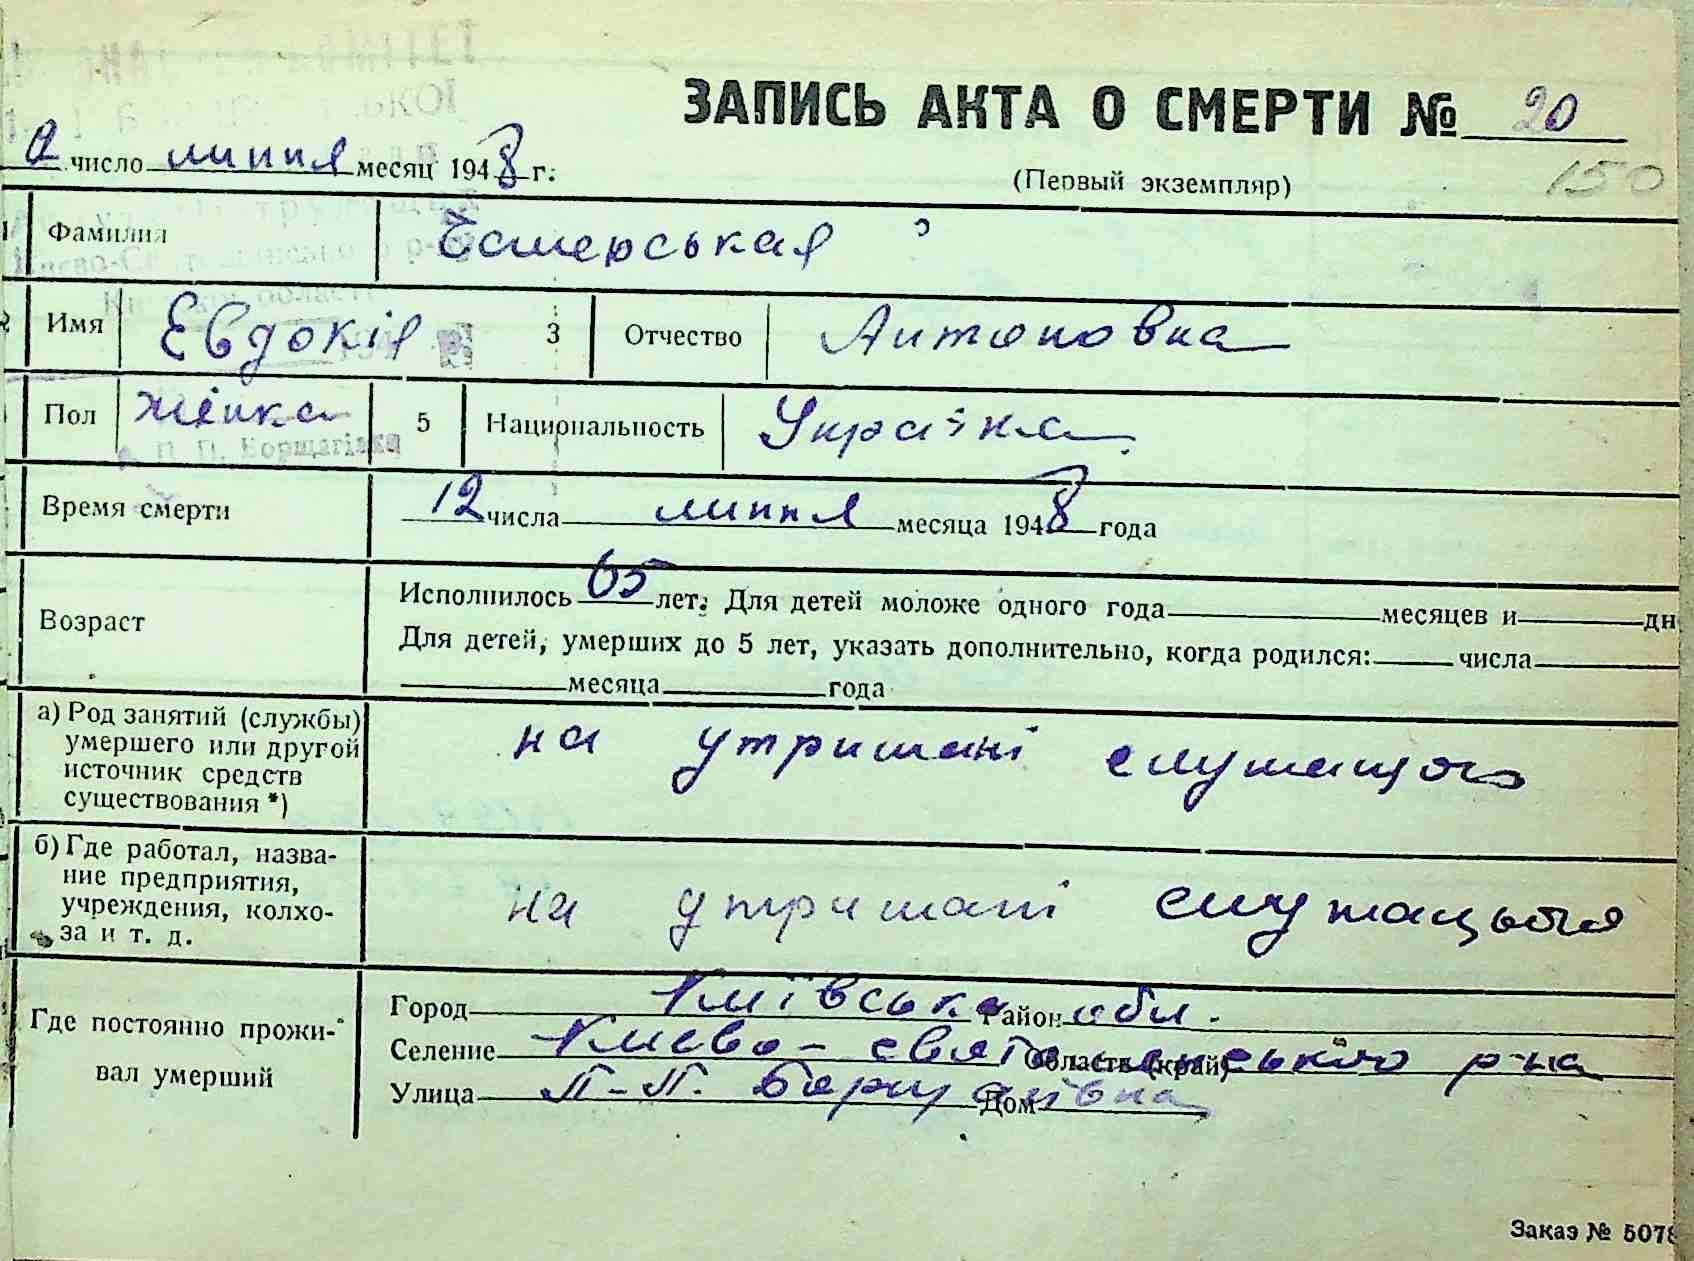 ЗАПИСЬ АКТА О СМЕРТИ № 20
число липня месяц 1948 г.
(Первый экземпляр)
150
Фамилия
Имя Евдокія 3 Отчество Антоновна
Пол жінка 5 Национальность Українка
П. П. Борщагівка
Время смерти 12 числа липня месяца 1948 года
Возраст
Исполнилось 65 лет. Для детей моложе одного года месяцев и дн
Для детей, умерших до 5 лет, указать дополнительно, когда родился: числа
месяца года
а) Род занятий (службы)
умершего или другой
источник средств
существования *)
на утримані служащого
б) Где работал, назва-
ние предприятия,
учреждения, колхо-
за и т. д.
на утримані
Где постоянно прожи-
вал умерший
Город Київська Район обл.
Селение Києво-святошинського Область (край) р-на
Улица П-П. Борщагівка Дом
Заказ № 5078